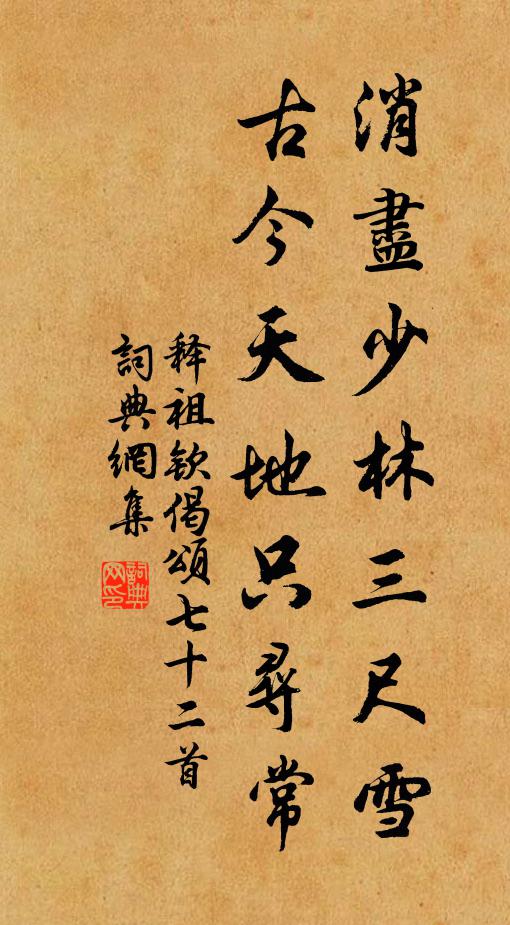 消盡少林三尺雪
古今天地只尋常
释祖钦偈頌七十二首
詞典網集
詞典网印